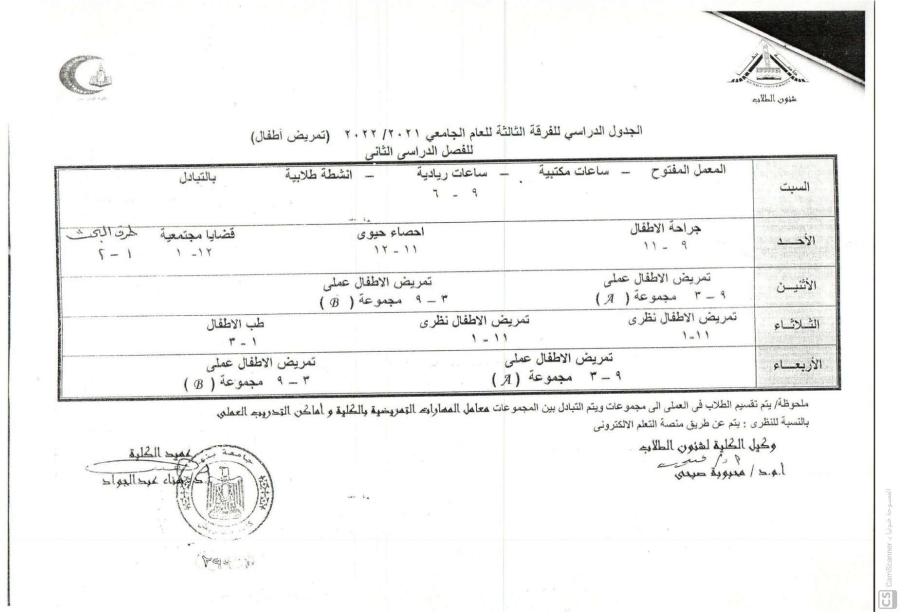 شئون الطلاب
الجدول الدراسي للفرقة الثالثة للعام الجامعي ٢٠٢١/ ٢٠٢٢ (تمريض أطفال)
للفصل الدراسي الثاني
السبت
المعمل المفتوح – ساعات مكتبية – ساعات ريادية – انشطة طلابية بالتبادل
٩ - ٦
الأحــد
جراحة الاطفال احصاء حيوى قضايا مجتمعية طرق البحث
٩ - ١١ ١١ - ١٢ ١٢ - ١ ١ - ٢
الأثنيــن
تمريض الاطفال عملى تمريض الاطفال عملى
٩ – ٣ مجموعة ( A ) ٣ – ٩ مجموعة ( B )
الثــلاثــاء
تمريض الاطفال نظرى تمريض الاطفال نظرى طب الاطفال
١١-١ ١١ - ١ ١ - ٣
الأربعــاء
تمريض الاطفال عملى تمريض الاطفال عملى
٩ – ٣ مجموعة ( A ) ٣ – ٩ مجموعة ( B )
ملحوظة/ يتم تقسيم الطلاب فى العملى الى مجموعات ويتم التبادل بين المجموعات معامل المهارات التمريضية بالكلية و أماكن التدريب العملى
بالنسبة للنظرى : يتم عن طريق منصة التعلم الالكترونى
وكيل الكلية لشئون الطلاب
أ.م.د / محبوبة صبحى
عميد الكلية
أ.د/ هناء عبدالجواد
CS CamScanner الممسوحة ضوئيا بـ